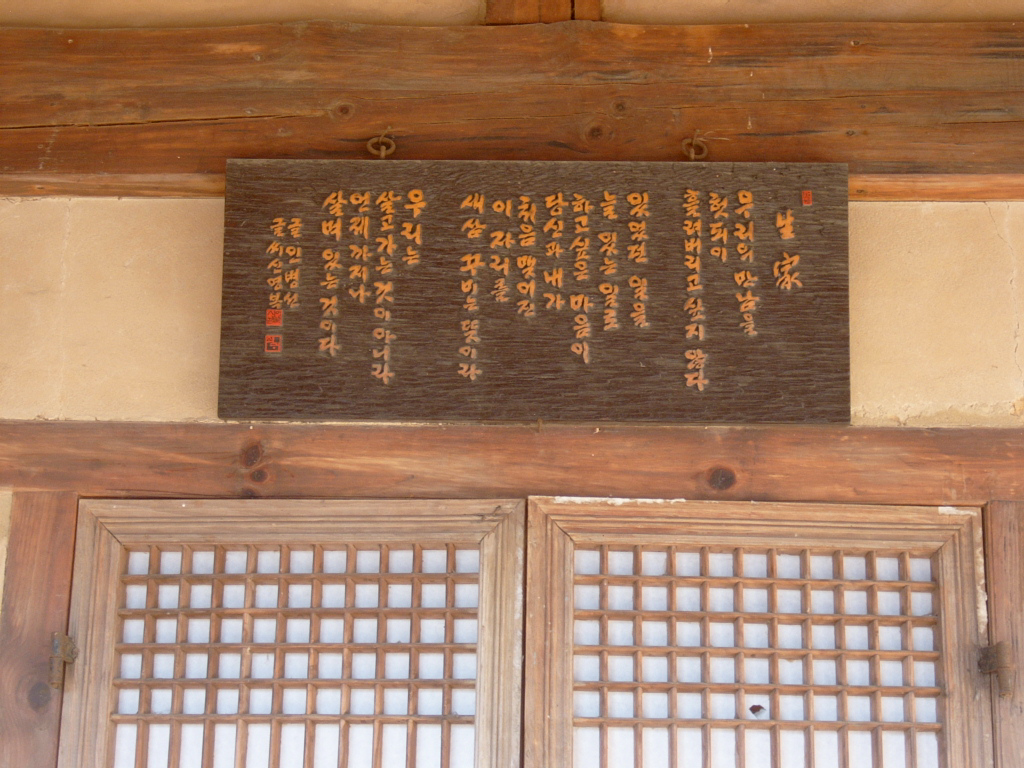 生家
우리의 만남을
헛되이
흘려버리고 싶지 않다
있었던 일을
늘 있는 일로
하고 싶은 마음이
당신과 내가
처음 맺어진
이 자리를
새삼 꾸미는 뜻이라
우리는
살고 가는 것이 아니라
언제까지나
살며 있는 것이다
글 인병선
글씨 신영복